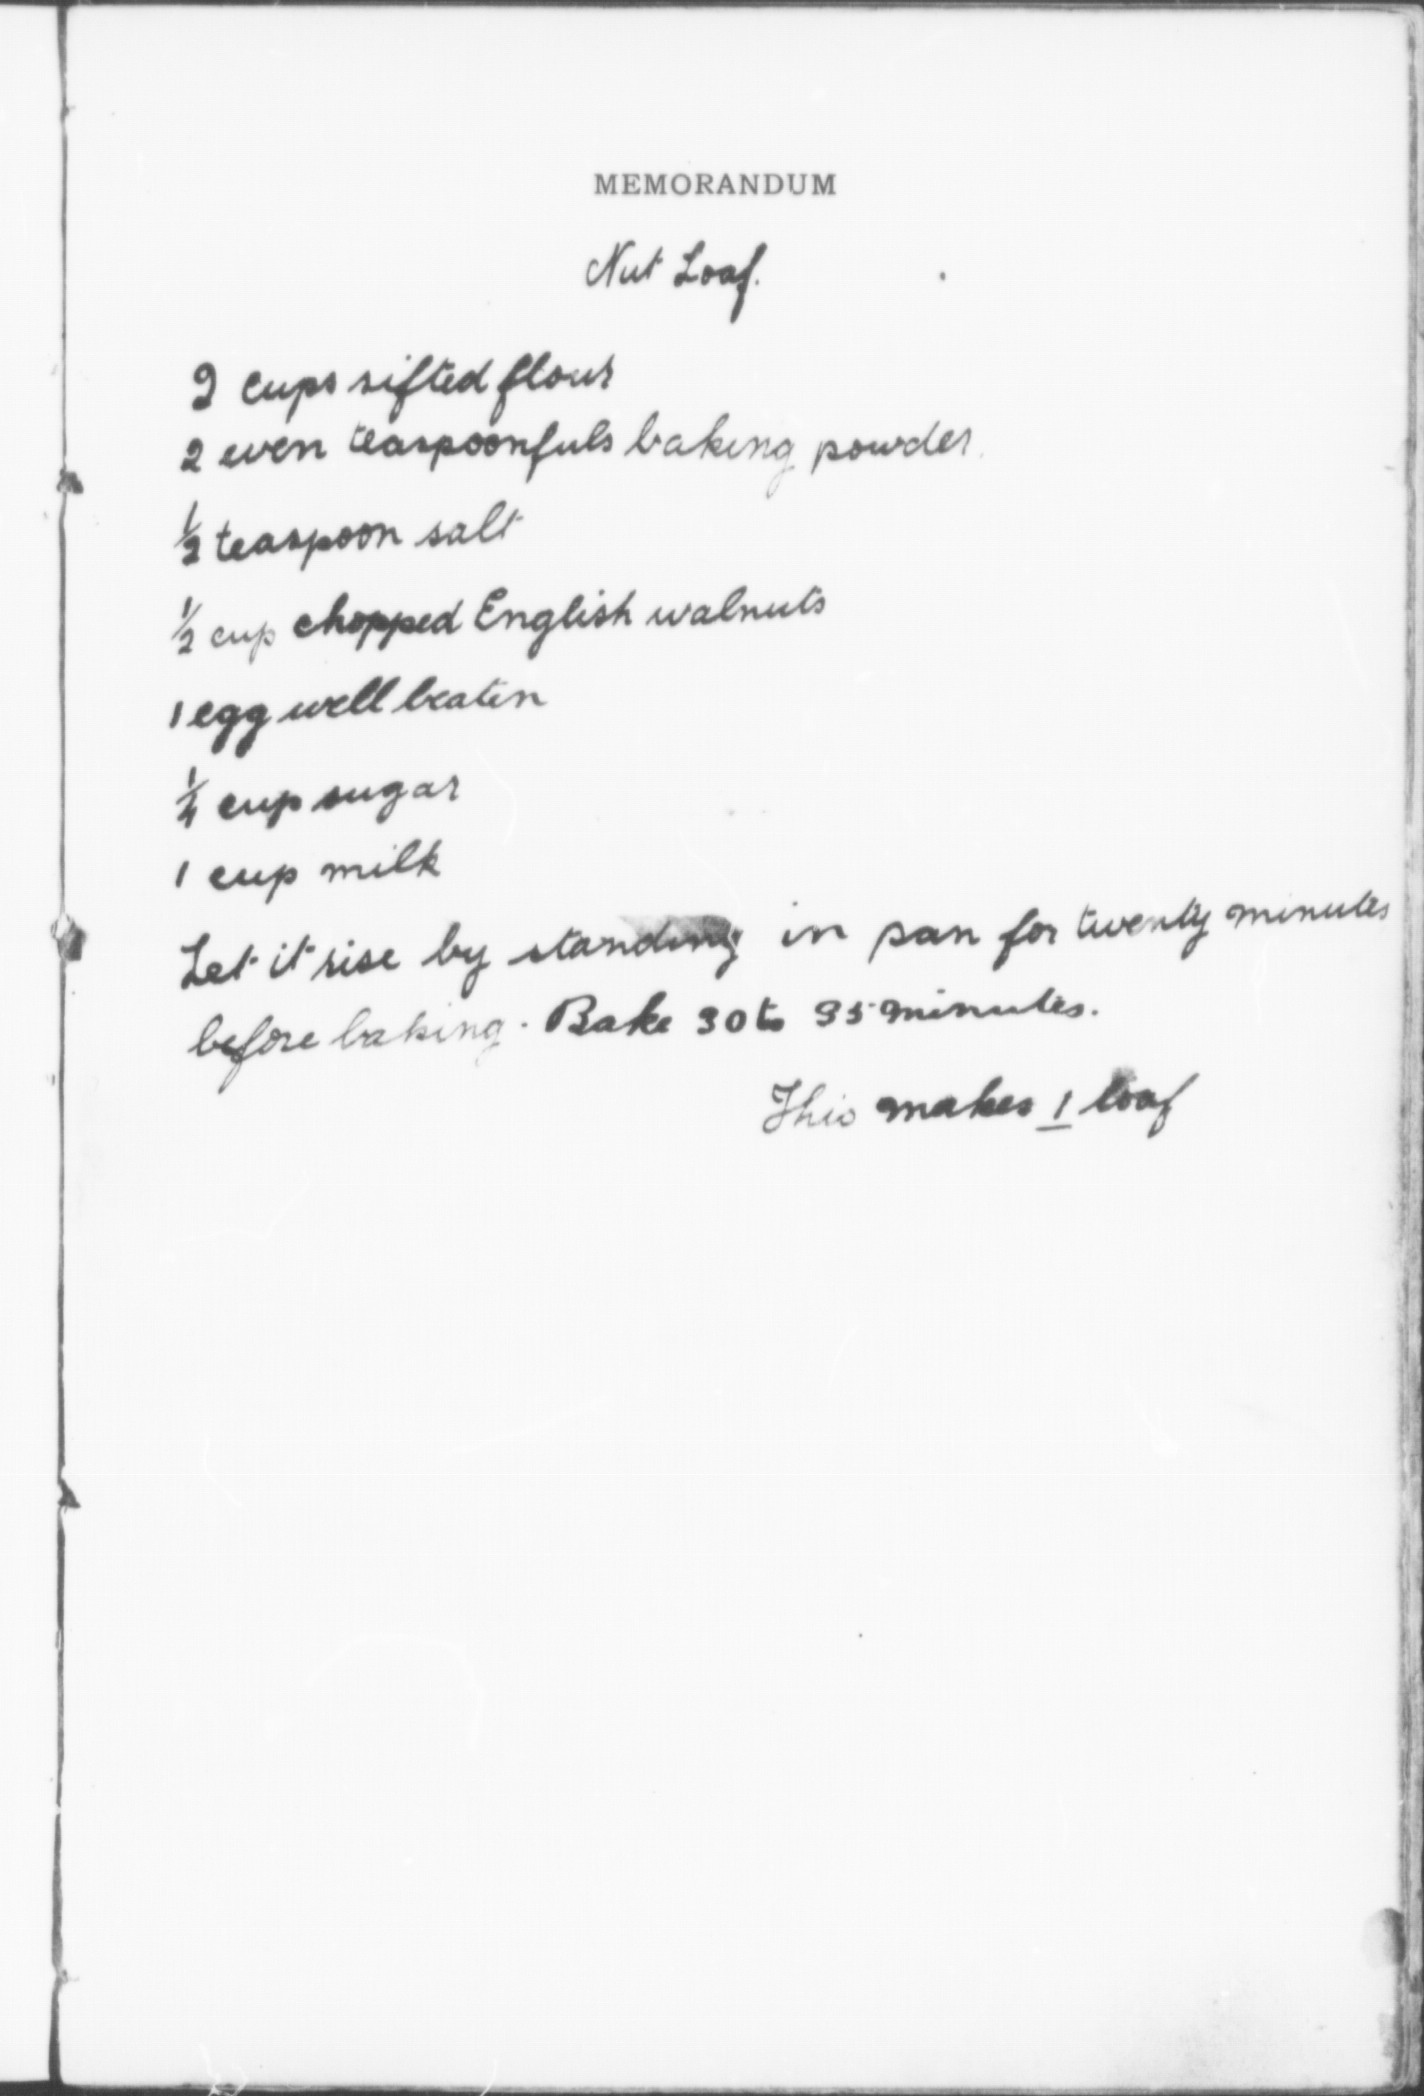 MEMORANDUM
Nut Loaf.
2 cups sifted flour
2 even teaspoonfuls baking powder.
1/2 teaspoon salt
1/2 cup chopped English walnuts
1 egg well beaten
1/4 cup sugar
1 cup milk
Let it rise by standing in pan for twenty minutes
before baking. Bake 30 to 35 minutes.
This makes 1 loaf